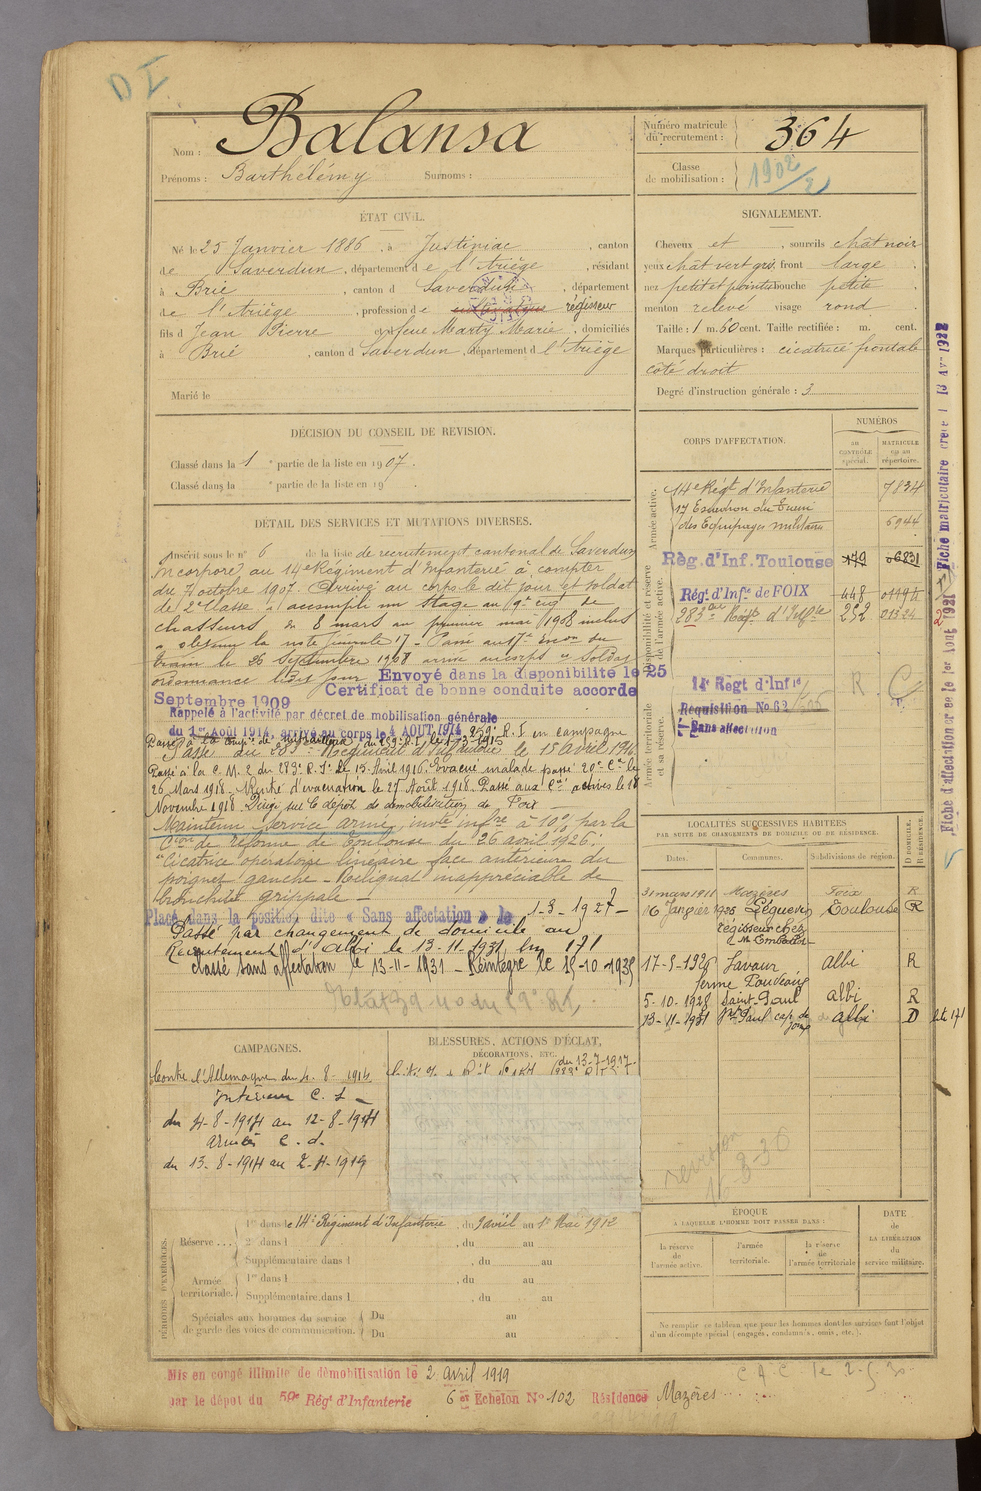 D I
Nom : Balansa
Prénoms : Barthélémy Surnoms :
Numéro matricule du recrutement : 364
Classe de mobilisation : 1902/2
ÉTAT CIVIL.
Né le 25 Janvier 1886, à Justiniac, canton
de Saverdun, département de l'Ariège, résidant
à Brie, canton d Saverdun, département
de l'Ariège, profession de régisseur
fils d Jean Pierre et feue Marty Marie, domiciliés
à Brie, canton d Saverdun, département d l'Ariège
Marié le
SIGNALEMENT.
Cheveux et , sourcils chât noir
yeux chât vert gris, front large
nez petit et pointu bouche petite
menton relevé visage rond
Taille : 1 m. 60 cent. Taille rectifiée : m. cent.
Marques particulières : cicatrice frontale
côté droit
Degré d'instruction générale : 3
DÉCISION DU CONSEIL DE REVISION.
Classé dans la 1 e partie de la liste en 1907.
Classé dans la e partie de la liste en 19
CORPS D'AFFECTATION.
NUMÉROS
AU CONTRÔLE spécial.
MATRICULE ou au répertoire.
Armée active.
14e Régt d'Infanterie 7834
17 Escadron du Train
des Equipages militaires 6944
Disponibilité et réserve de l'armée active.
Rég. d'Inf. Toulouse 179 06831
Régt d'Infie de FOIX 448 01194
283e Régt d'Infie 252 01324
Armée territoriale et sa réserve.
14 Régt d'Infie R C
Réquisition No 63
Sans affectation
DÉTAIL DES SERVICES ET MUTATIONS DIVERSES.
Inscrit sous le n° 6 de la liste de recrutement cantonal de Saverdun
Incorporé au 14e Régiment d'Infanterie à compter
du 7 octobre 1907. Arrivé au corps le dit jour et soldat
de 2e Classe. a accompli un stage au 9e
chasseurs du 8 mars au premier mai 1908 inclus
a obtenu la note 17 - Passé au 17e Escon du
train le 26 Septembre 1908 arrivé au corps et Soldat
ordonnance ledit jour Envoyé dans la disponibilité le 25
Septembre 1909 Certificat de bonne conduite accordé
Rappelé à l'activité par décret de mobilisation générale
du 1er Août 1914, arrivé au corps le 4 AOUT 1914 259e R.I en campagne
Passé au 283e Régiment d'Infanterie le 15 avril 1916
Passé à la C. M. 2 du 283e R. I. le 15 Avril 1916. Evacué malade passé 20e Cie le
26 Mars 1918. Rentré d'évacuation le 27 Août 1918. Passé aux Cies actives le 18
Novembre 1918. Dirigé sur le dépôt de démobilisation de Foix
Maintenu service armé, invté infre à 10% par la
Con de réforme de Toulouse du 26 avril 1926 :
"Cicatrice opératoire linéaire face antérieure du
poignet gauche - Reliquat inappréciable de
bronchite grippale -
Placé dans la position dite « Sans affectation » le 1-3-1927 -
Passé par changement de domicile au
Recrutement d'Albi le 13-11-1931 bm 171
classé sans affectation le 13-11-1931 - Réintégré le 15-10-1935
LOCALITÉS SUCCESSIVES HABITÉES
PAR SUITE DE CHANGEMENTS DE DOMICILE OU DE RÉSIDENCE.
Dates. Communes. Subdivisions de région. D DOMICILE. R RÉSIDENCE.
31 mars 1911 Mazères Foix R
16 Janvier 1925 Léguevin Toulouse R
régisseur chez
17-5-1926 Lavaur albi R
ferme
5-10-1928 Saint-Paul albi R
13-11-1931 St Paul cap de joux albi D
CAMPAGNES.
Contre l'Allemagne du 4-8-1914
Intérieur C. S
du 4-8-1914 au 12-8-1914
armées C. d.
du 13-8-1914 au 2-4-1919
BLESSURES, ACTIONS D'ÉCLAT,
DÉCORATIONS, ETC.
du 13-7-1917
revision
PÉRIODES D'EXERCICES.
Réserve ... 1re dans le 14e Régiment d'Infanterie, du 9 avril au 1er Mai 1912
2e dans l , du au
Supplémentaire dans l , du au
Armée territoriale. 1re dans l , du au
Supplémentaire dans l , du au
Spéciales aux hommes du service de garde des voies de communication. Du au
Du au
ÉPOQUE
À LAQUELLE L'HOMME DOIT PASSER DANS :
la réserve de l'armée active.
l'armée territoriale.
la réserve de l'armée territoriale
DATE de LA LIBÉRATION du service militaire.
Ne remplir ce tableau que pour les hommes dont les services font l'objet
d'un décompte spécial (engagés, condamnés, omis, etc.).
Mis en congé illimité de démobilisation le 2 Avril 1919
par le dépôt du 59e Régt d'Infanterie 6 et Echelon No 102 Résidence Mazères
C A C le 2-5-30
Fiche d'affectation créée le 1er Août 1921
Fiche matriculaire créée l 13 Avr 1922